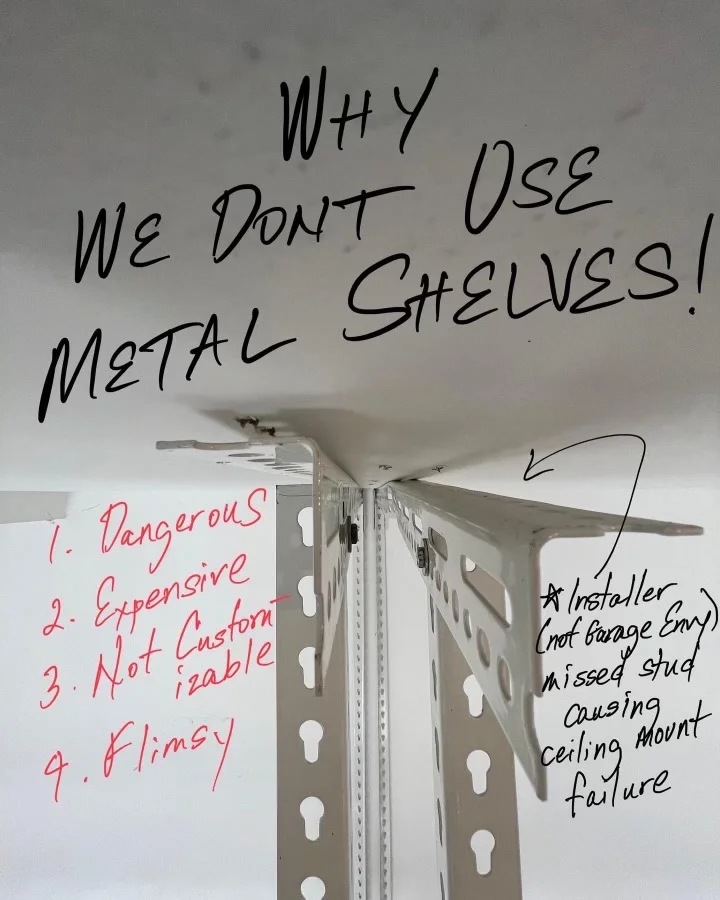 WHY
WE DONT USE
METAL SHELVES!
1. Dangerous
2. Expensive
3. Not Custom-
izable
4. Flimsy
*Installer
(not Garage Envy)
missed stud
causing
ceiling mount
failure